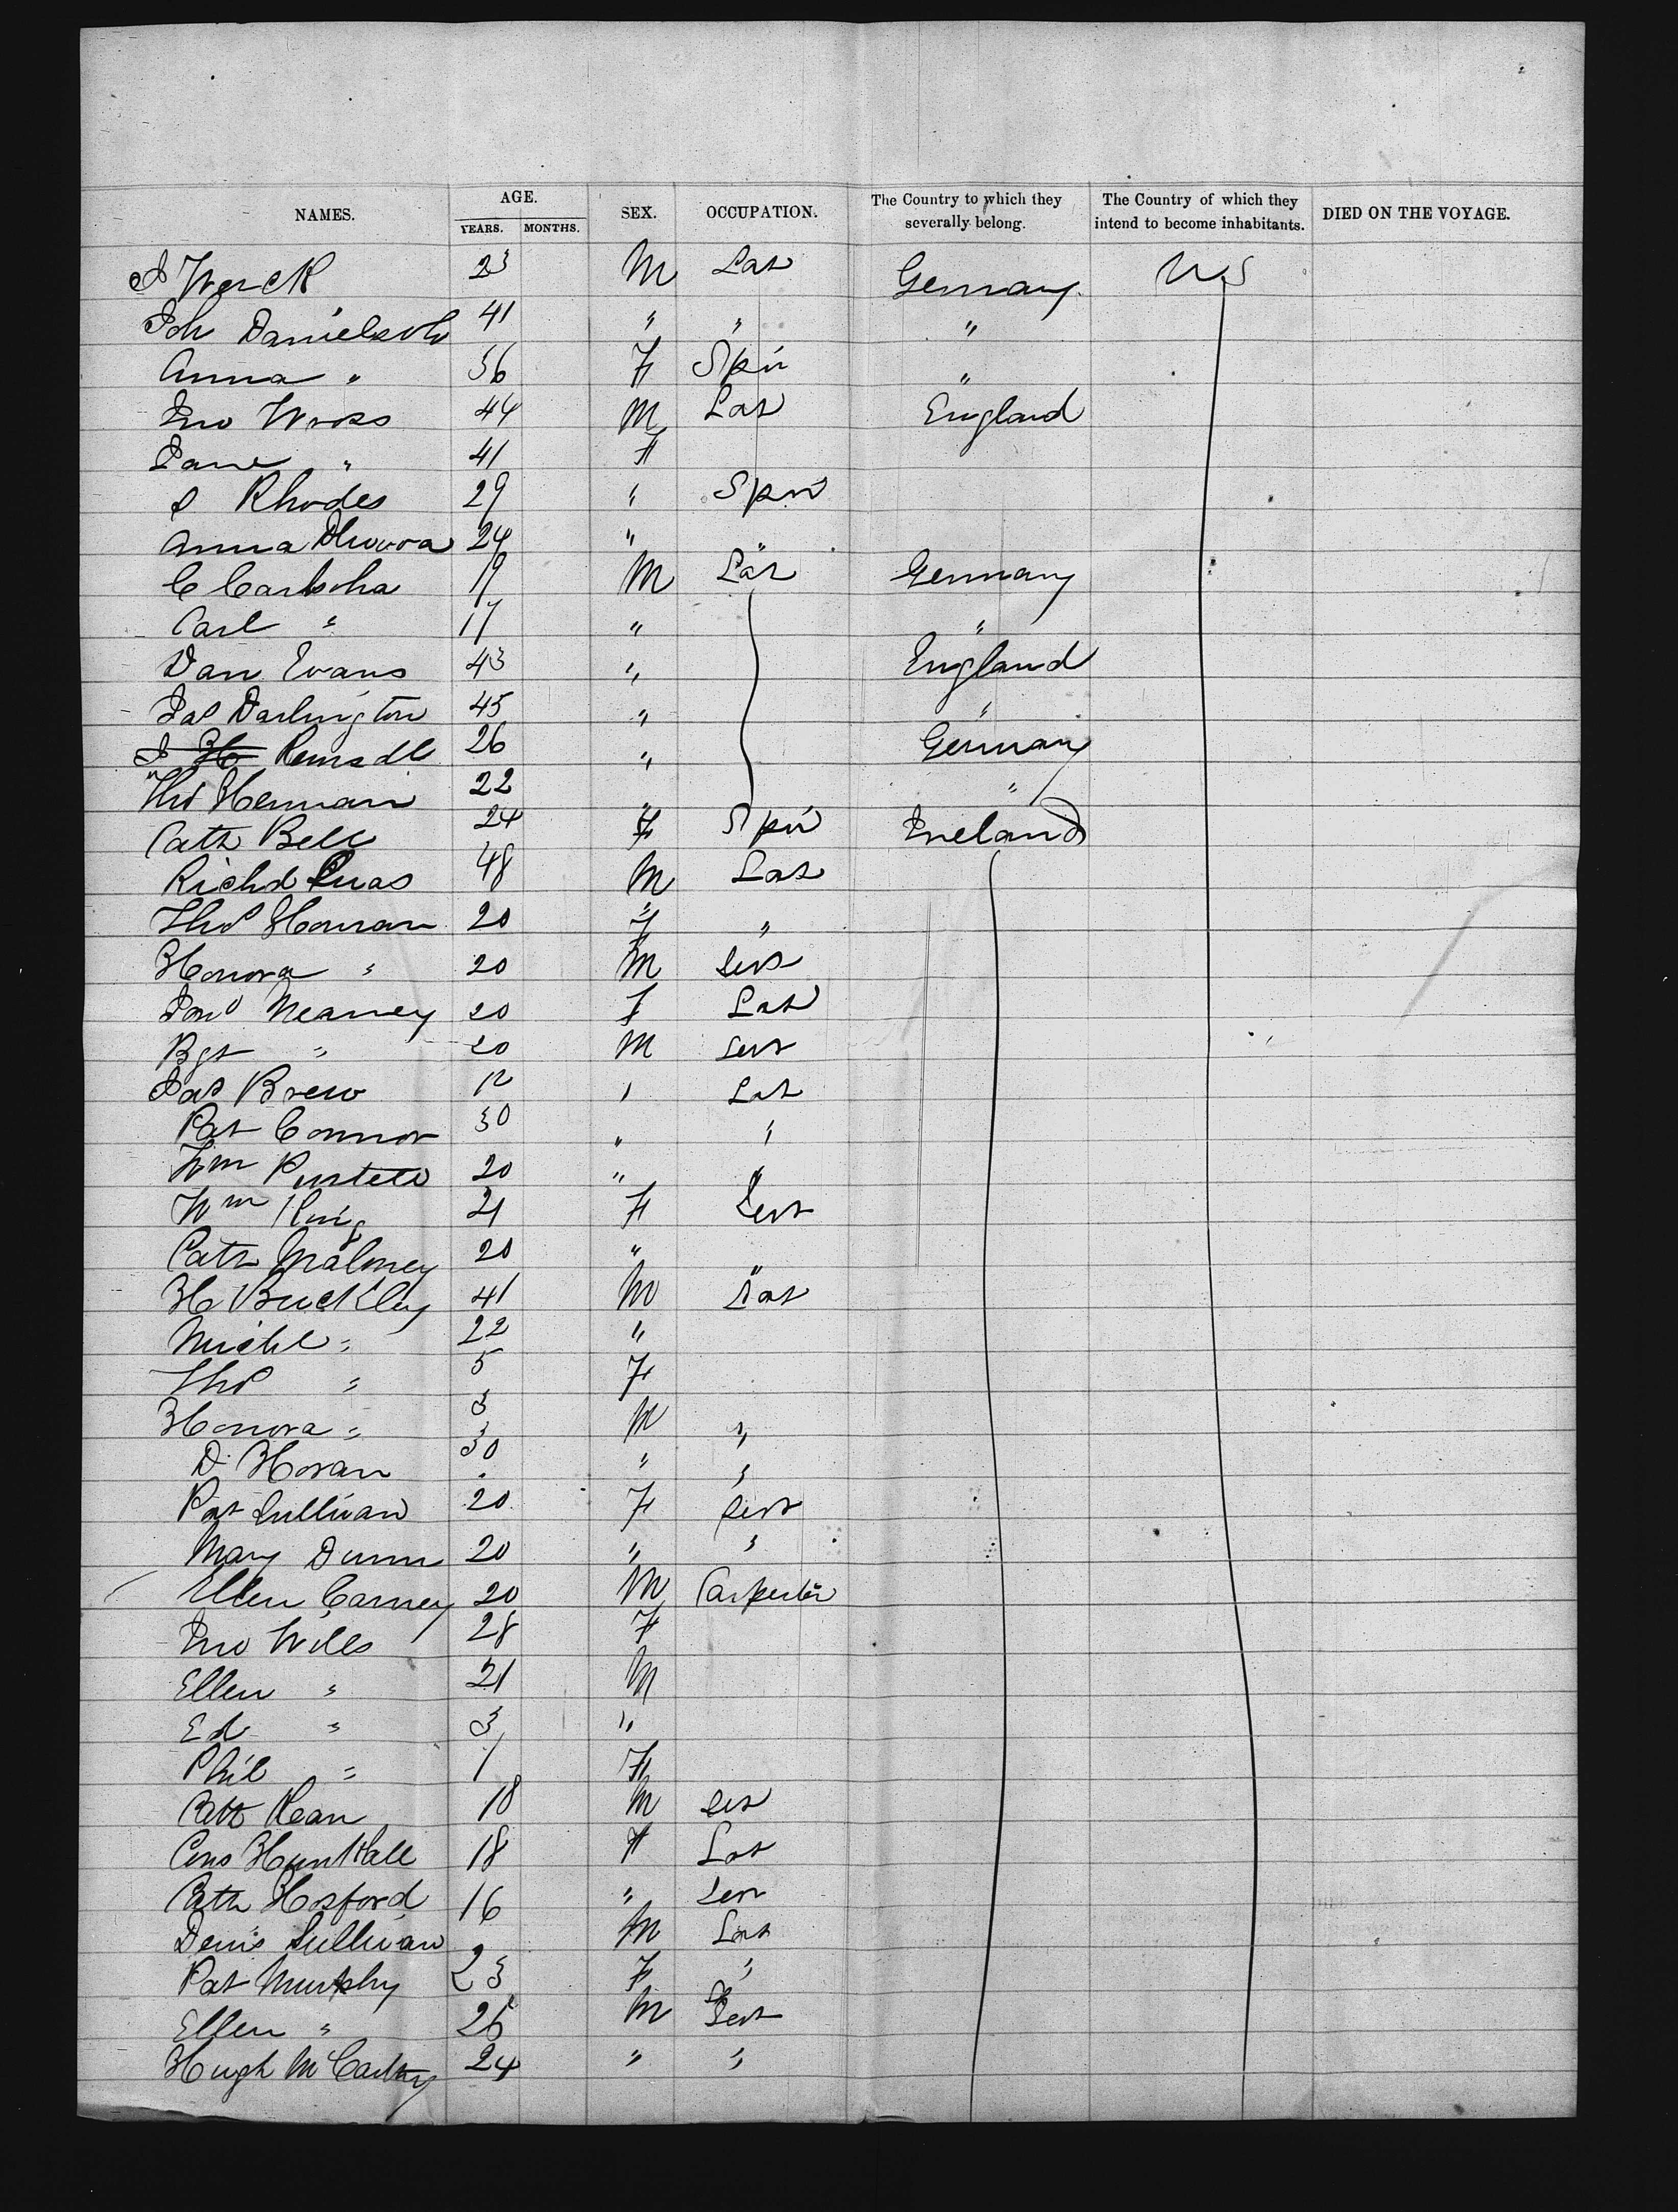 NAMES. AGE. YEARS. MONTHS. SEX. OCCUPATION. The Country to which they severally belong. The Country of which they intend to become inhabitants. DIED ON THE VOYAGE.
J Werck 23 M Lab Germany U S
Joh Danielsohn 41 " " "
Anna " 36 F Spin "
Jno Wross 44 M Lab England
Jane " 41 F
S Rhodes 29 " Spin
Anna 24 " "
C Carlsoha 19 M Lab Germany
Carl " 17 " "
Dan Evans 43 " England
Jas Darlington 45 " "
26 " Germany
Thos Herman 22 " "
Cath Bell 24 F Spin Ireland
Richd 48 M Lab
Thos Honran 20 F "
Honora " 20 M Serv
Jno Nearney 20 F Lab
Bgt " 20 M Serv
Pat Brew 12 " Lab
Pat Connor 30 " "
Wm 20 " "
Wm King 21 F Serv
Cath Maloney 20 " "
H Buckley 41 M Lab
Michl " 22 "
Thos " 5 F
Honora " 3 M "
D Horan 30 " "
Pat Sullivan 20 F Serv
Mary Dunn 20 " "
Ellen Carney 20 M Carpenter
Jno Wills 28 F
Ellen " 21 M
Ed " 3 "
Phil " 1 F
Cath Kean 18 M Serv
Cons Hunthall 18 F Lab
Cath Hosford 16 " Serv
Denis Sullivan M Lab
Pat Murphy 23 F "
Ellen " 26 M Serv
Hugh McCarthy 24 " "